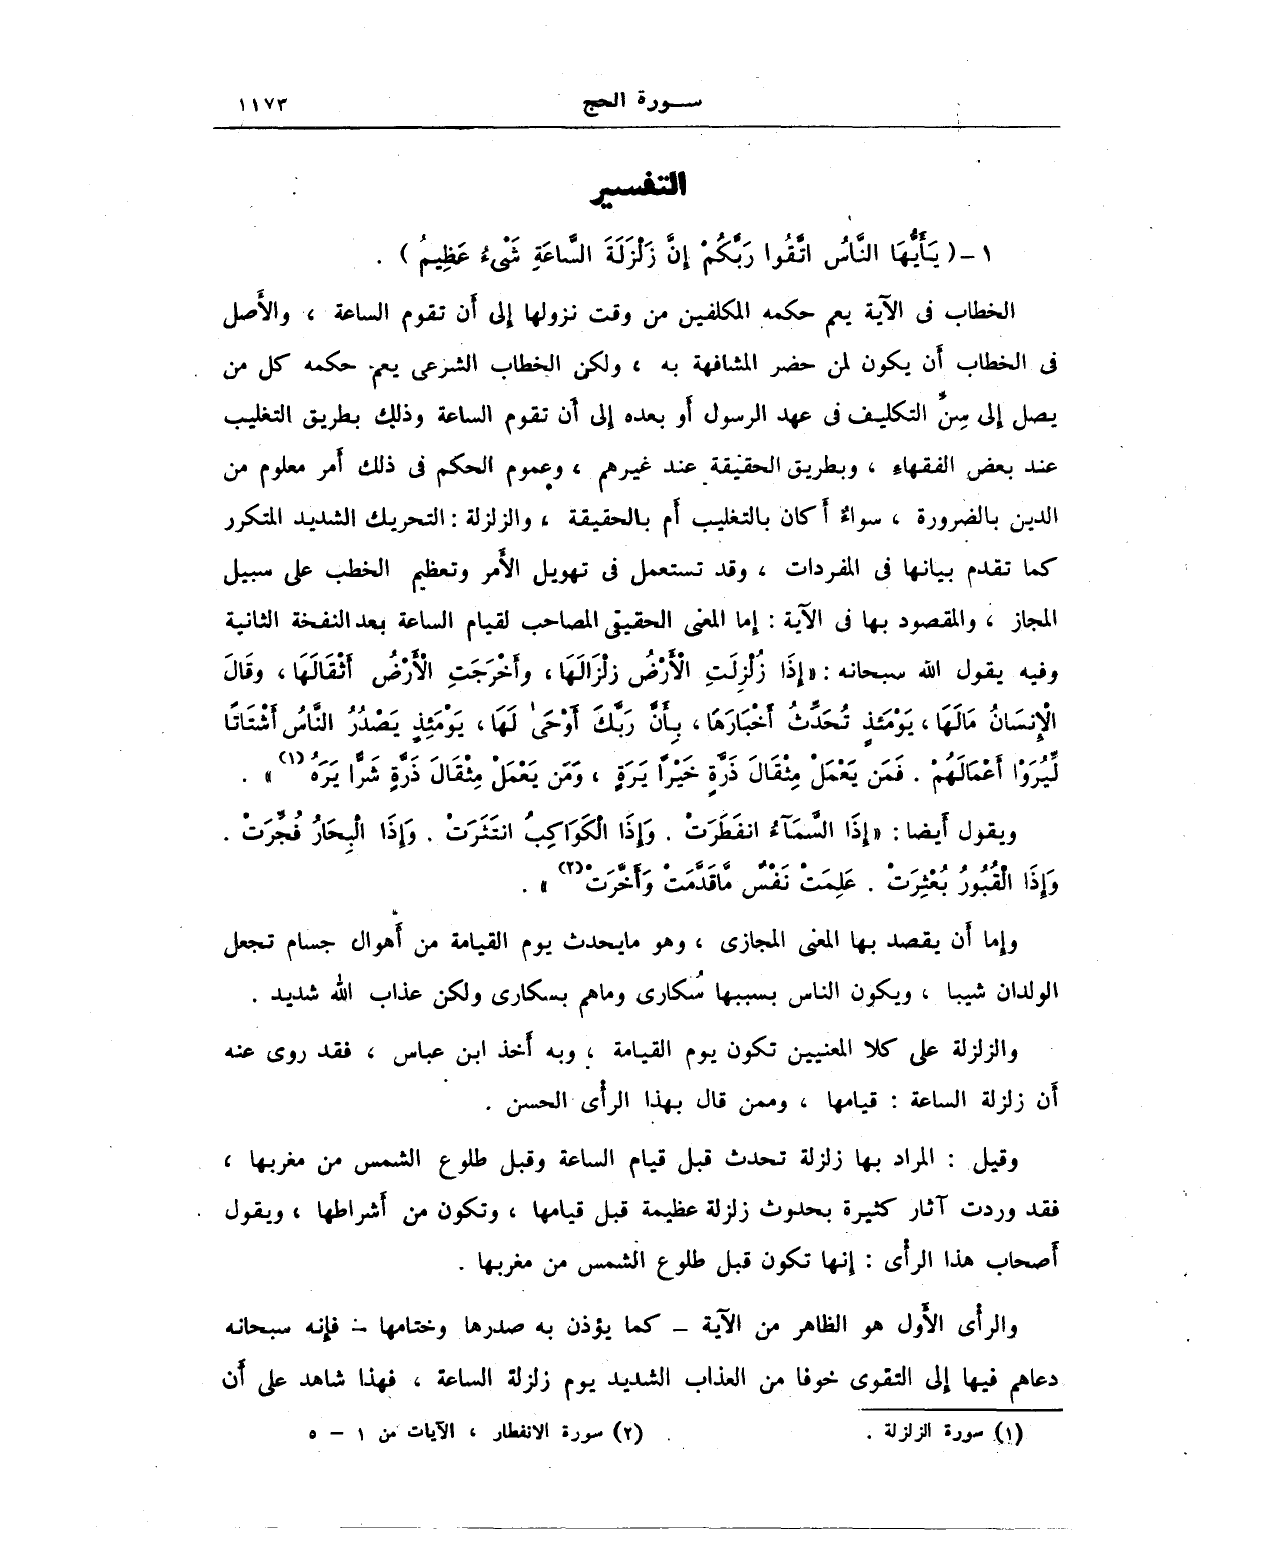 سورة الحج ١١٧٣
التفسير
١ - ( يَـأَيُّهَا النَّاسُ اتَّقُوا رَبَّكُمْ إِنَّ زَلْزَلَةَ السَّاعَةِ شَىْءٌ عَظِيمٌ ) .
الخطاب فى الآية يعم حكمه المكلفين من وقت نزولها إلى أن تقوم الساعة ، والأصل
فى الخطاب أن يكون لمن حضر المشافهة به ، ولكن الخطاب الشرعى يعم حكمه كل من
يصل إلى سِنِّ التكليف فى عهد الرسول أو بعده إلى أن تقوم الساعة وذلك بطريق التغليب
عند بعض الفقهاء ، وبطريق الحقيقة عند غيرهم ، وعموم الحكم فى ذلك أمر معلوم من
الدين بالضرورة ، سواءٌ أكان بالتغليب أم بالحقيقة ، والزلزلة : التحريك الشديد المتكرر
كما تقدم بيانها فى المفردات ، وقد تستعمل فى تهويل الأمر وتعظيم الخطب على سبيل
المجاز ، والمقصود بها فى الآية : إما المعنى الحقيقى المصاحب لقيام الساعة بعد النفخة الثانية
وفيه يقول الله سبحانه : «إِذَا زُلْزِلَتِ الْأَرْضُ زِلْزَالَهَا ، وأَخْرَجَتِ الْأَرْضُ أَثْقَالَهَا ، وقَالَ
الْإِنسَانُ مَالَهَا ، يَوْمَئِذٍ تُحَدِّثُ أَخْبَارَهَا ، بِأَنَّ رَبَّكَ أَوْحَىٰ لَهَا ، يَوْمَئِذٍ يَصْدُرُ النَّاسُ أَشْتَاتًا
لِّيُرَوْا أَعْمَالَهُمْ . فَمَن يَعْمَلْ مِثْقَالَ ذَرَّةٍ خَيْرًا يَرَهُ ، وَمَن يَعْمَلْ مِثْقَالَ ذَرَّةٍ شَرًّا يَرَهُ (١) » .
ويقول أيضا : «إِذَا السَّمَآءُ انفَطَرَتْ . وَإِذَا الْكَوَاكِبُ انتَثَرَتْ . وَإِذَا الْبِحَارُ فُجِّرَتْ .
وَإِذَا الْقُبُورُ بُعْثِرَتْ . عَلِمَتْ نَفْسٌ مَّاقَدَّمَتْ وَأَخَّرَتْ (٢) » .
وإما أن يقصد بها المعنى المجازى ، وهو مايحدث يوم القيامة من أهوال جسام تجعل
الولدان شيبا ، ويكون الناس بسببها سُكارى وماهم بسكارى ولكن عذاب الله شديد .
والزلزلة على كلا المعنيين تكون يوم القيامة ، وبه أخذ ابن عباس ، فقد روى عنه
أن زلزلة الساعة : قيامها ، وممن قال بهذا الرأى الحسن .
وقيل : المراد بها زلزلة تحدث قبل قيام الساعة وقبل طلوع الشمس من مغربها ،
فقد وردت آثار كثيرة بحدوث زلزلة عظيمة قبل قيامها ، وتكون من أشراطها ، ويقول
أصحاب هذا الرأى : إنها تكون قبل طلوع الشمس من مغربها .
والرأى الأول هو الظاهر من الآية – كما يؤذن به صدرها وختامها – فإنه سبحانه
دعاهم فيها إلى التقوى خوفا من العذاب الشديد يوم زلزلة الساعة ، فهذا شاهد على أن
(١) سورة الزلزلة . (٢) سورة الانفطار ، الآيات من ١ – ٥